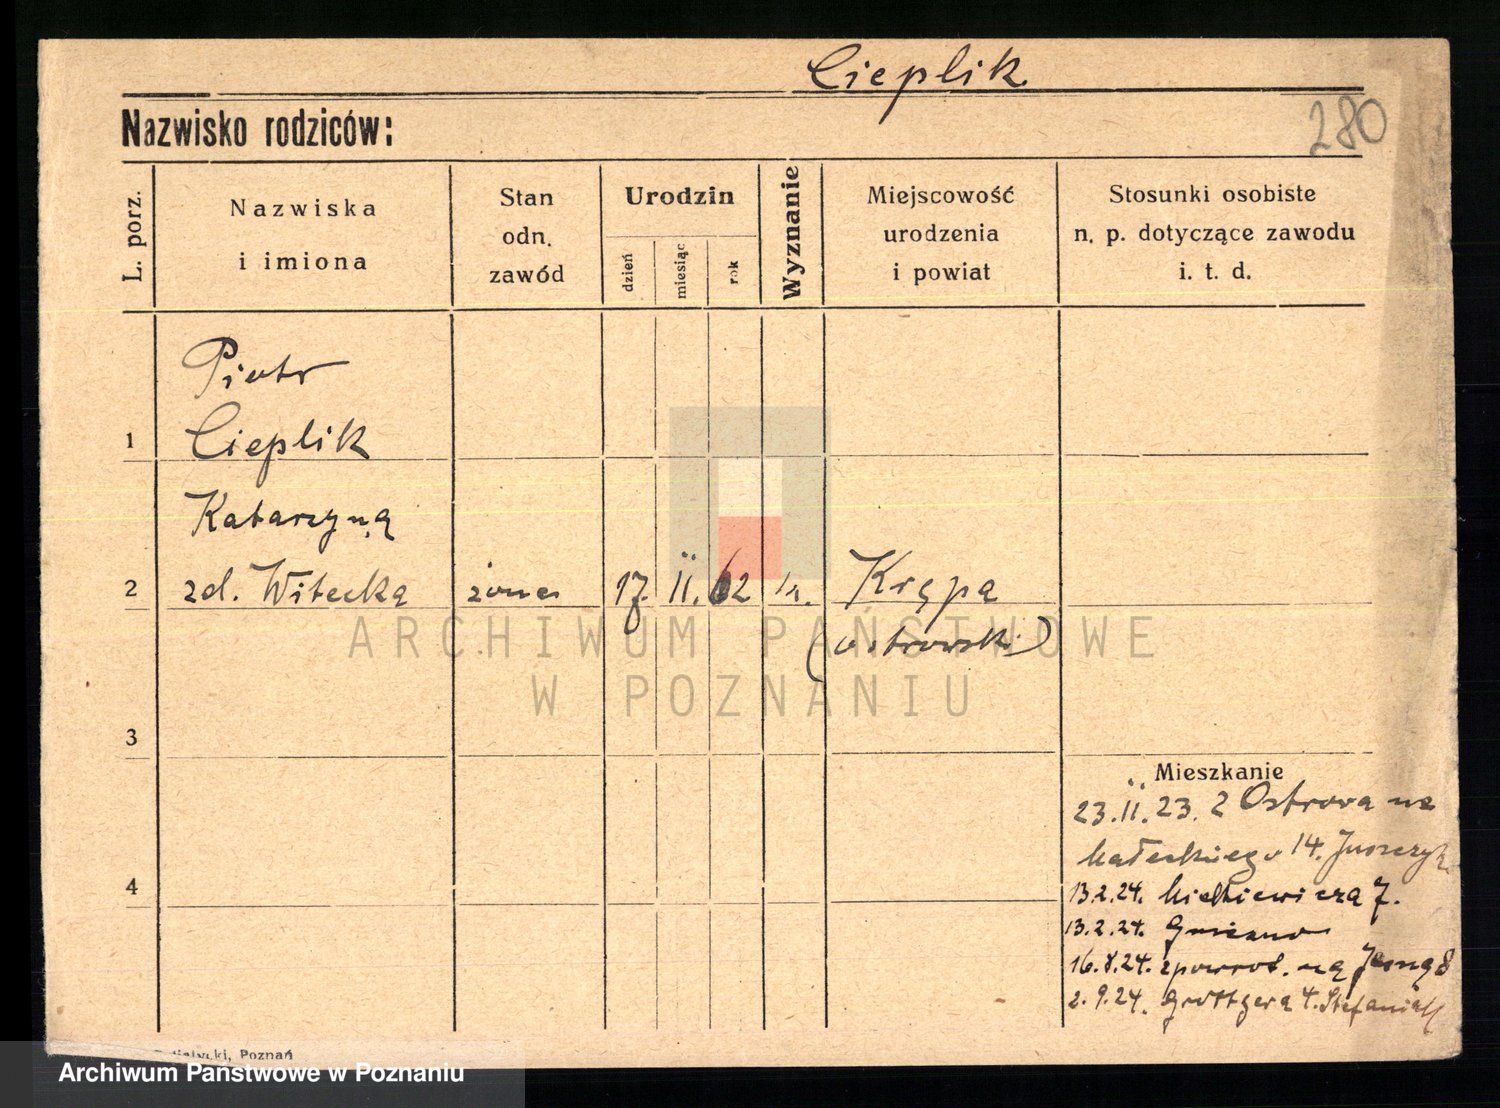 Cieplik
280
Nazwisko rodziców:
L. porz.
Nazwiska
i imiona
Stan
odn.
zawód
Urodzin
dzień
miesiąc
rok
Wyznanie
Miejscowość
urodzenia
i powiat
Stosunki osobiste
n. p. dotyczące zawodu
i. t. d.
Piotr
1 Cieplik
Katarzyna
2 zd. Witecka żona 17. II. 62 k. Krępa
(ostrowski)
ARCHIWUM PAŃSTWOWE
W POZNANIU
3
Mieszkanie
23.II.23. z Ostrowa na
Małeckiego 14.
4
13.2.24. Mickiewicza 7.
13.2.24. Gniezno
16.8.24. zpowrot. na
2.9.24. Grottgera 4. Stefaniak
Poznań
Archiwum Państwowe w Poznaniu